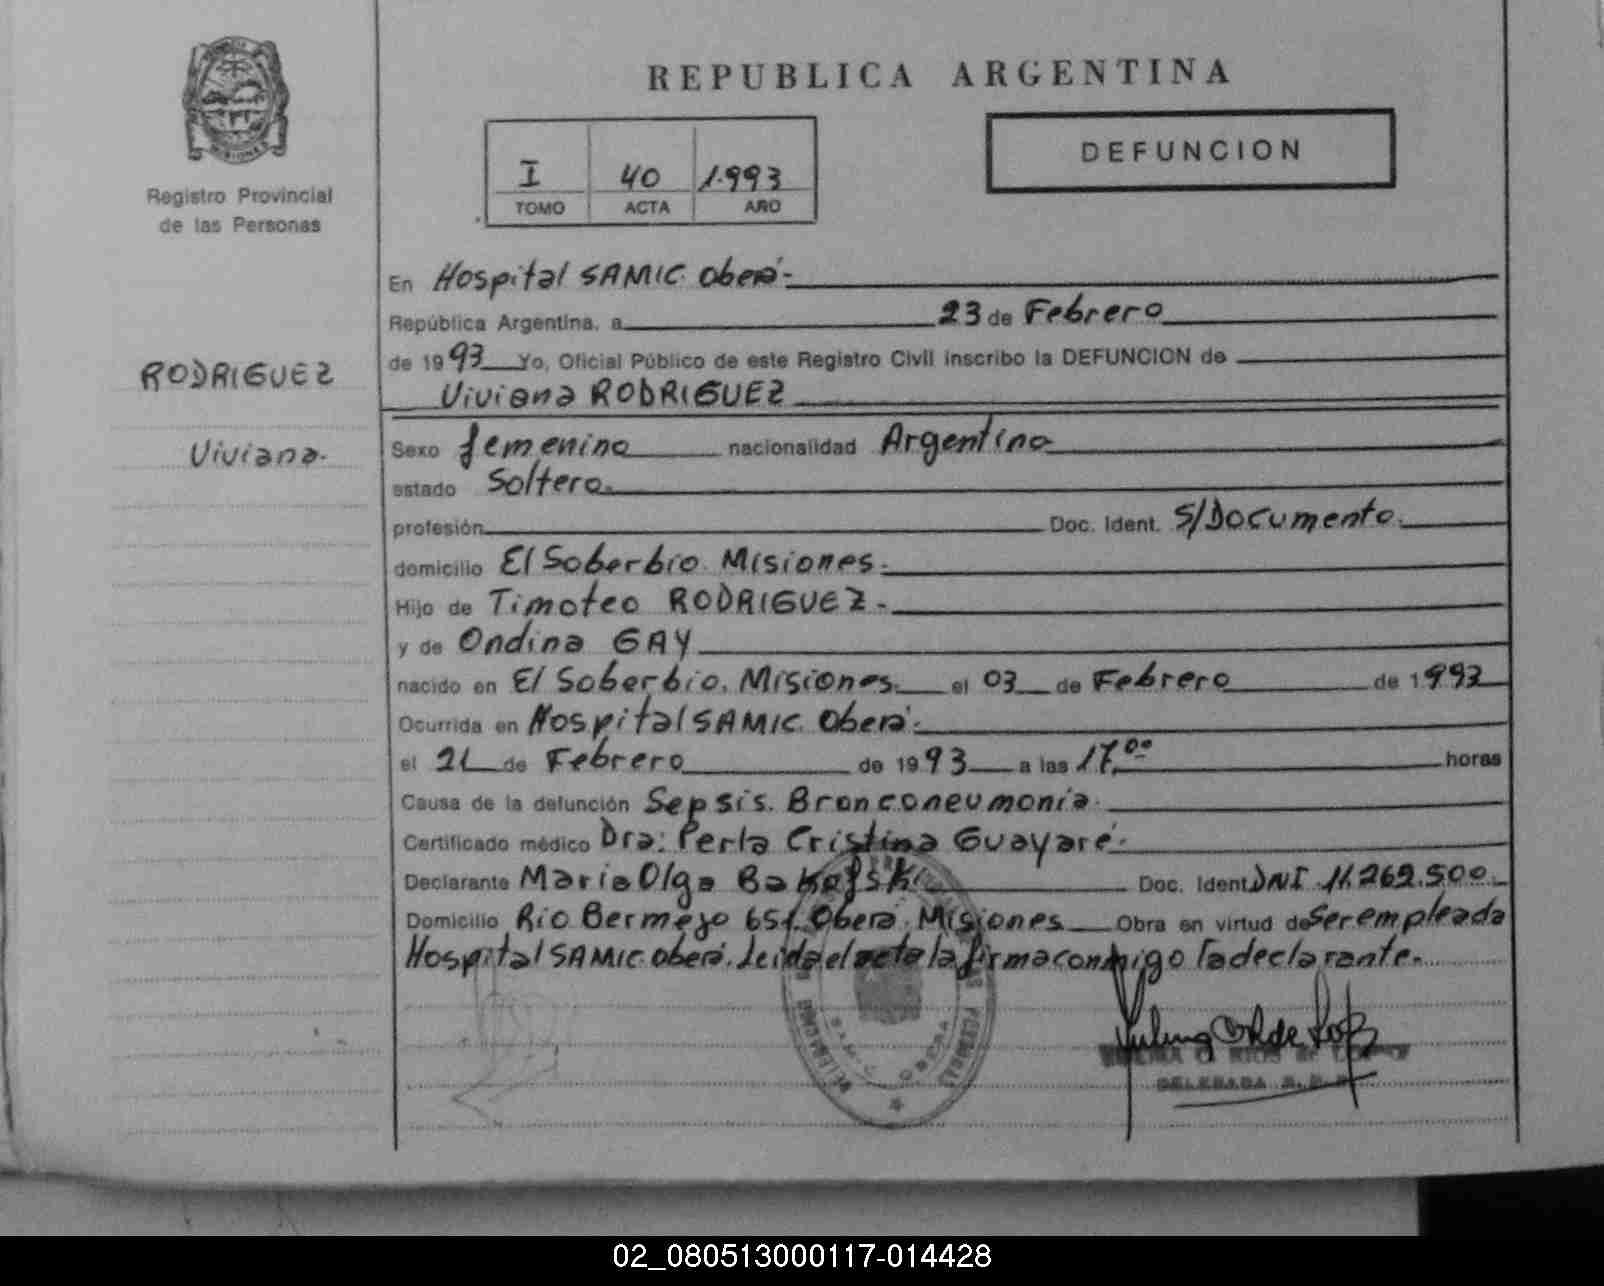 REPUBLICA ARGENTINA
MISIONES
Registro Provincial
de las Personas
I 40 1.993
TOMO ACTA AÑO
DEFUNCION
RODRIGUEZ
Viviana.
En Hospital SAMIC. Oberá.-
República Argentina, a 23 de Febrero
de 1993 Yo, Oficial Público de este Registro Civil inscribo la DEFUNCION de
Viviana RODRIGUEZ
Sexo femenino nacionalidad Argentina
estado Soltera.
profesión Doc. Ident. S/Documento.
domicilio El Soberbio. Misiones.
Hijo de Timoteo RODRIGUEZ.-
y de Ondina GAY
nacido en El Soberbio. Misiones. el 03 de Febrero de 1993
Ocurrida en Hospital SAMIC. Oberá.
el 21 de Febrero de 1993 a las 17,00 horas
Causa de la defunción Sepsis. Bronconeumonía.
Certificado médico Dra: Perla Cristina Guayaré.
Declarante Maria Olga Doc. Ident. DNI 11.269.500.
Domicilio Río Bermejo 651. Oberá. Misiones Obra en virtud de Ser empleada
Hospital SAMIC. Oberá. Leida el acta la firma conmigo la declarante.
DELEGADA
02_080513000117-014428